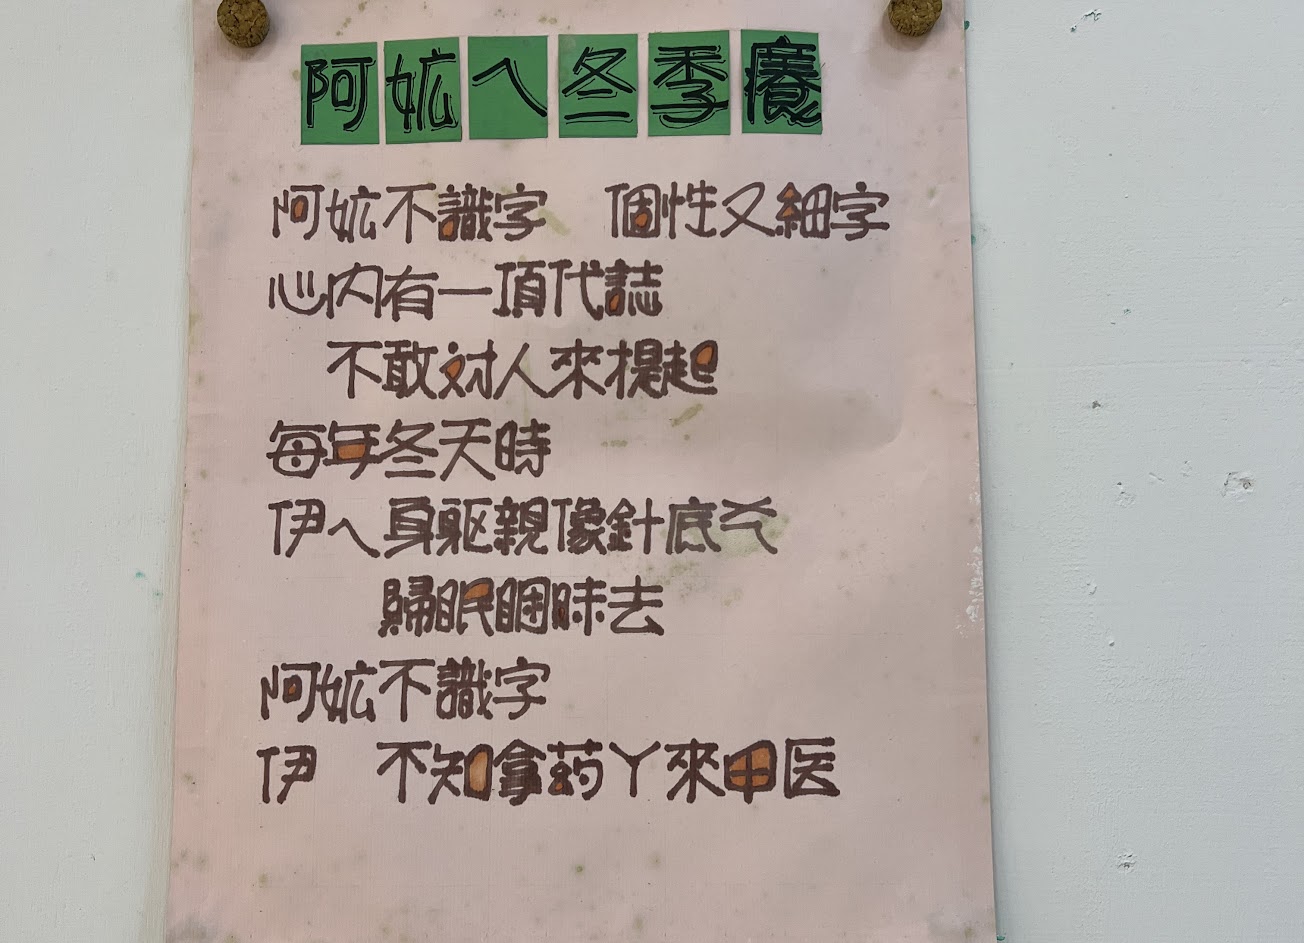 阿嬤ㄟ冬季癢
阿嬤不識字　個性又細字
心內有一項代誌
不敢対人來提起
每年冬天時
伊ㄟ身躯親像針底ㄨㄟ
歸眠睏昧去
阿嬤不識字
伊　不知拿药ㄚ來甲医